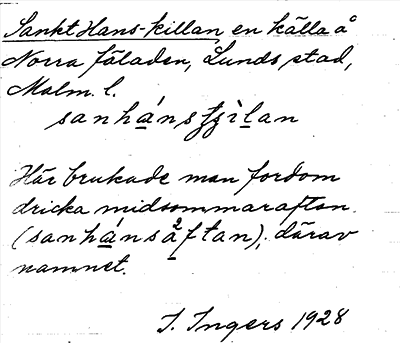 Sankt Hans-killan en källa å
Norra fäladen, Lunds stad,
Malm. l.
sanhánsʈʂìlan
Här brukade man fordom
dricka midsommarafton
(sanhánsåftan), därav
namnet.
I. Ingers 1928